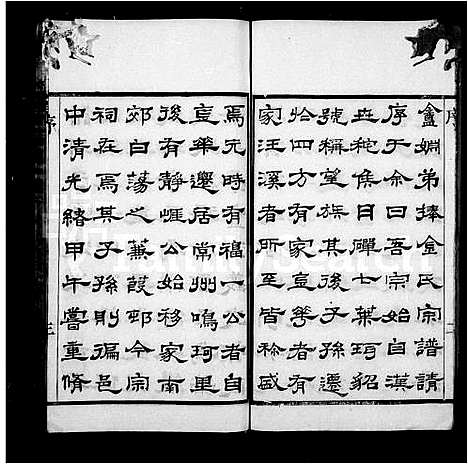 盦婣弟捧金氏宗譜請
序于余曰吾宗始自漢
世秺侯日磾七葉珥貂
號稱望族其後子孫遷
於四方有家宜華者有
家汪溪者所至皆称盛
序 二
焉元時有福一公者自
宜華遷居常州鳴珂里
後有靜涯公始移家南
郊白蕩之蒹葭邨今宗
祠在焉其子孫則徧邑
中清光緒甲午嘗重脩
序 三